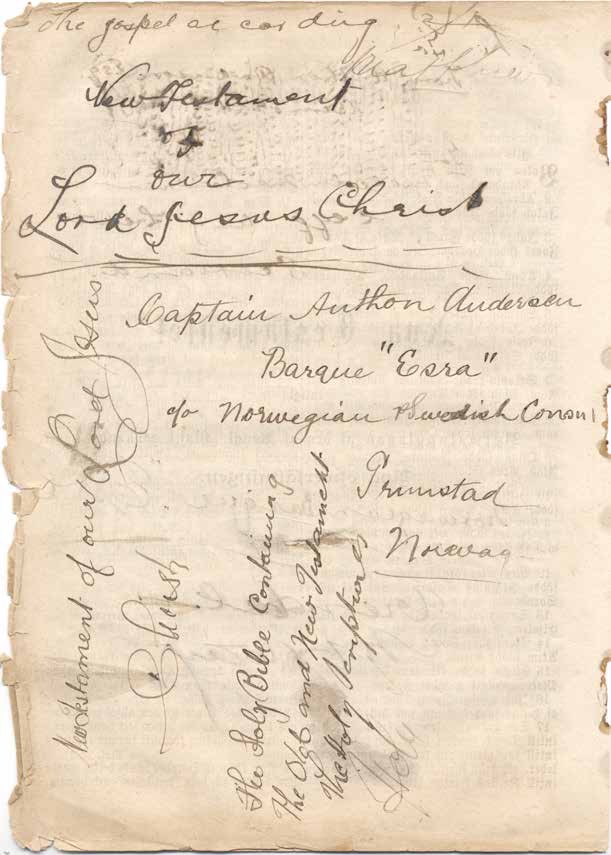 The gospel ac cording
Mathew
New Testament
of
our
Lord Jesus Christ
Captain Anthon Andersen
Barque "Esra"
c/o Norwegian & Swedish Consul
Grimstad
Norway
New Testament of our Lord Jesus
Christ
The Holy Bible Containing
The Old and New Testament
The Holy Scriptures
Holy